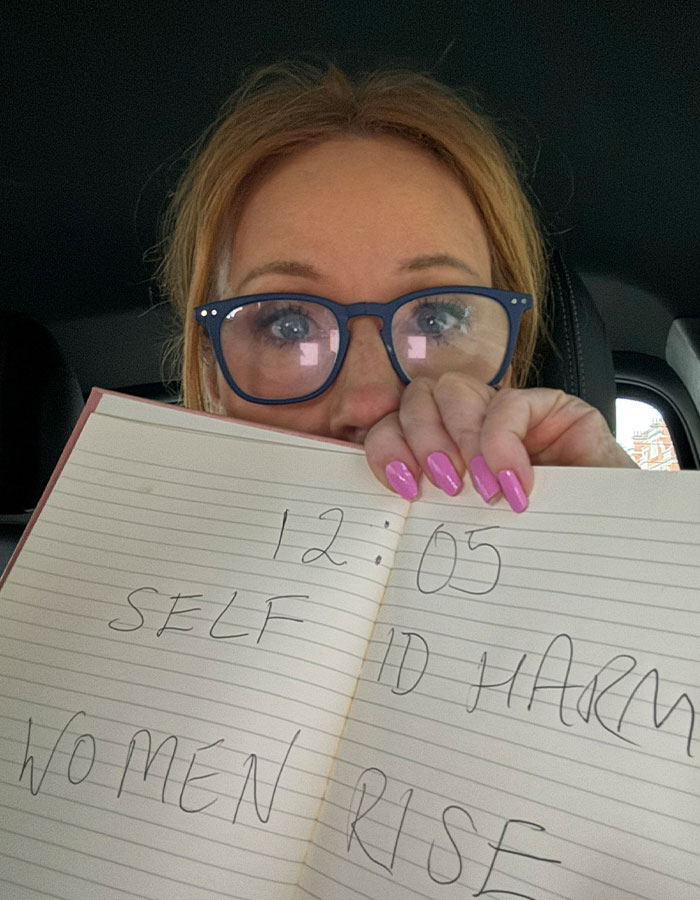 12:05
SELF ID HARM
WOMEN RISE